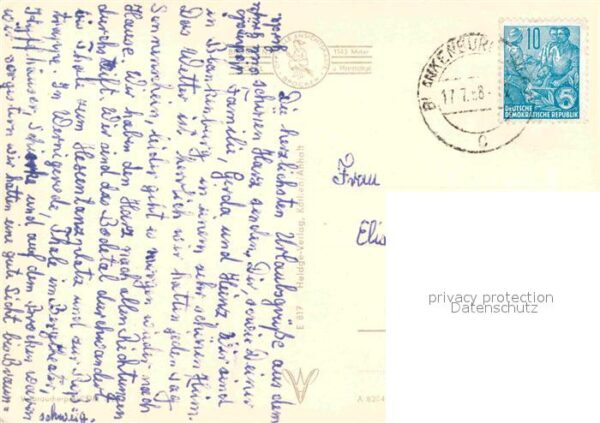 Die herzlichsten Urlaubsgrüße aus dem
schönen Harz senden Dir, sowie Deiner
Familie, Gerda und Heinz. Wir sind
in Blankenburg in einem sehr schönen Heim.
Das Wetter ist herrlich wir hatten jeden Tag
Sonnenschein, leider geht es morgen wieder nach
Hause. Wir haben den Harz nach allen Richtungen
durchstreift. Wir sind das Bodetal durchwandert
bis Thale zum Hexentanzplatz und zur Roß-
trappe. In Wernigerode, Thale im Bergtheater,
Kyffhäuser, Schierke und auf dem Brocken waren
wir vorgestern wir hatten eine gute Sicht bis Braun=
schweig.
1142 Meter
BLANKENBURG
17.7.58
c
10
5
DEUTSCHE
DEMOKRATISCHE REPUBLIK
Frau
Elis
E 817 Heldge-Verlag, Köthen/Anhalt
A 8204
privacy protection
Datenschutz